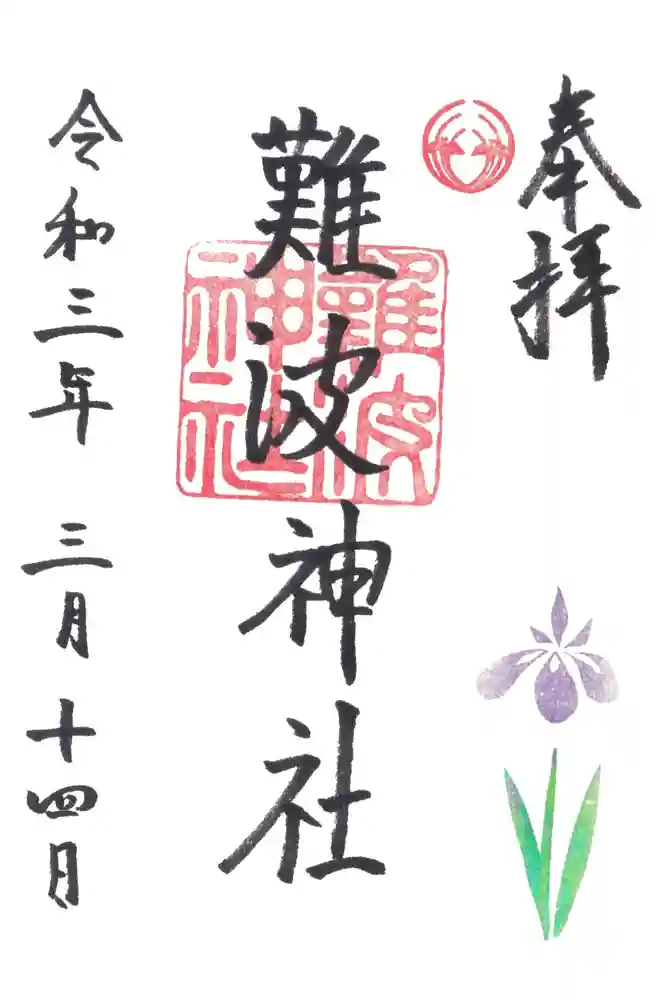 奉拝
難波神社
難波神社
令和三年 三月十四日